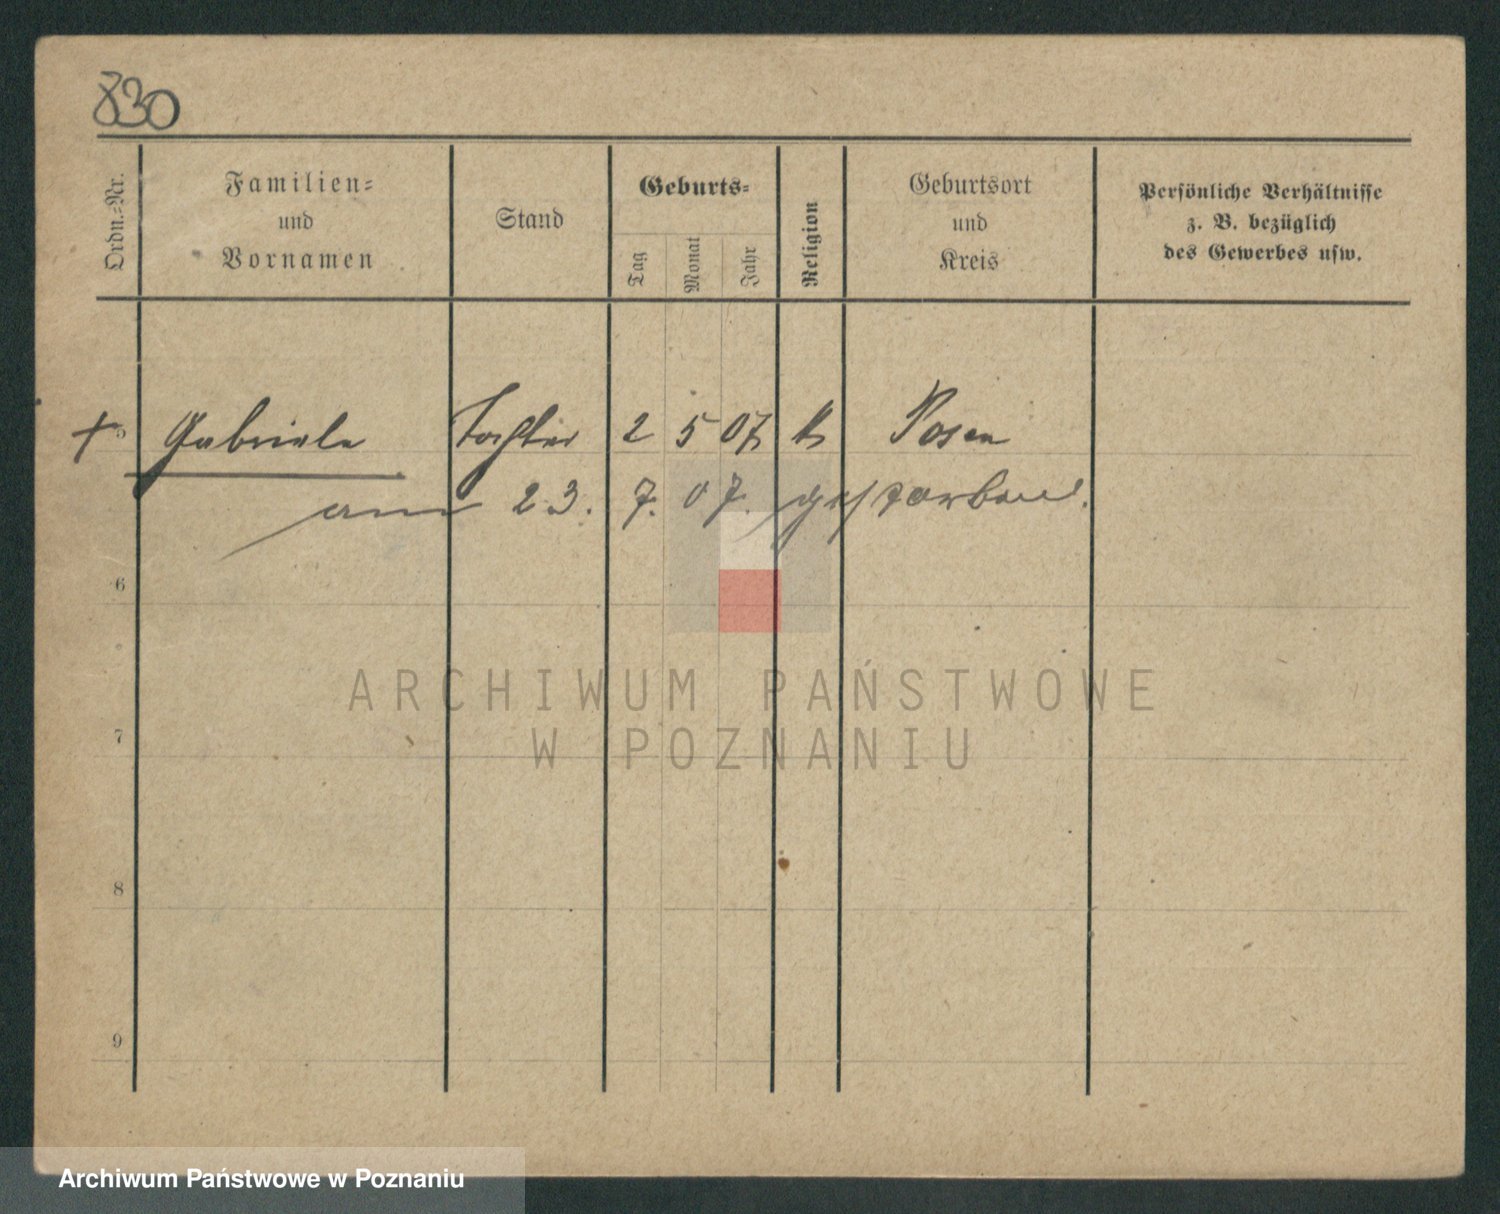 830
Ordn.-Nr.
Familien-
und
Vornamen
Stand
Geburts-
Tag
Monat
Jahr
Religion
Geburtsort
und
Kreis
Persönliche Verhältnisse
z. B. bezüglich
des Gewerbes usw.
+ 5 Gabriele Tochter 2 5 07 k Posen
am 23. 7. 07. gestorben.
6
ARCHIWUM PAŃSTWOWE
W POZNANIU
7
8
9
Archiwum Państwowe w Poznaniu